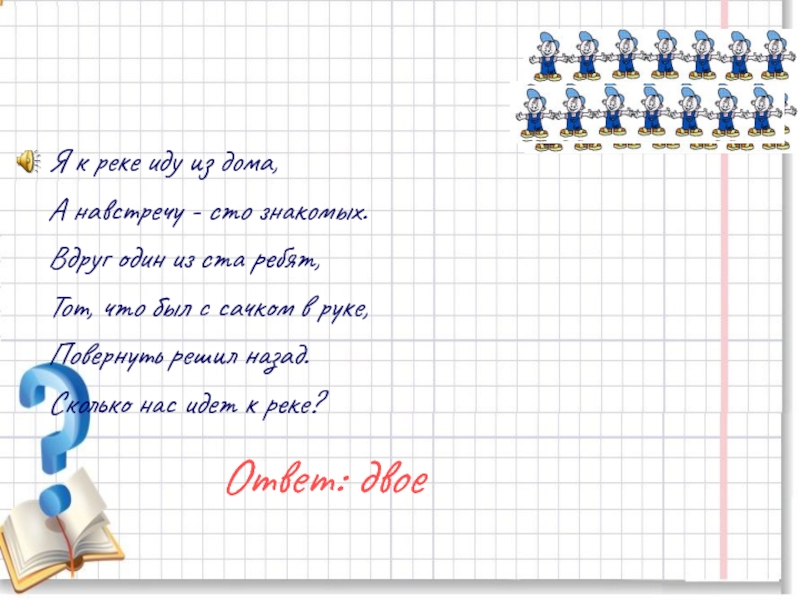 Я к реке иду из дома,
А навстречу - сто знакомых.
Вдруг один из ста ребят,
Тот, что был с сачком в руке,
Повернуть решил назад.
Сколько нас идет к реке?
Ответ: двое